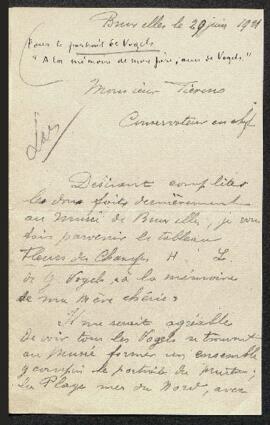 Bruxelles le 29 juin 1921
Pour le portrait de Vogels
"A la mémoire de mon père, ami de Vogels"
Monsieur Fierens
Conservateur en chef
Désirant compléter
les dons faits dernièrement
au musée de Bruxelles, je vous
fais parvenir le tableau
Fleurs des Champs H L
de G Vogels "à la mémoire
de ma mère chérie"
Il me serait agréable
de voir tous les Vogels se trouvant
au Musée former un ensemble
y compris le portrait du
La Plage mer du Nord, avec